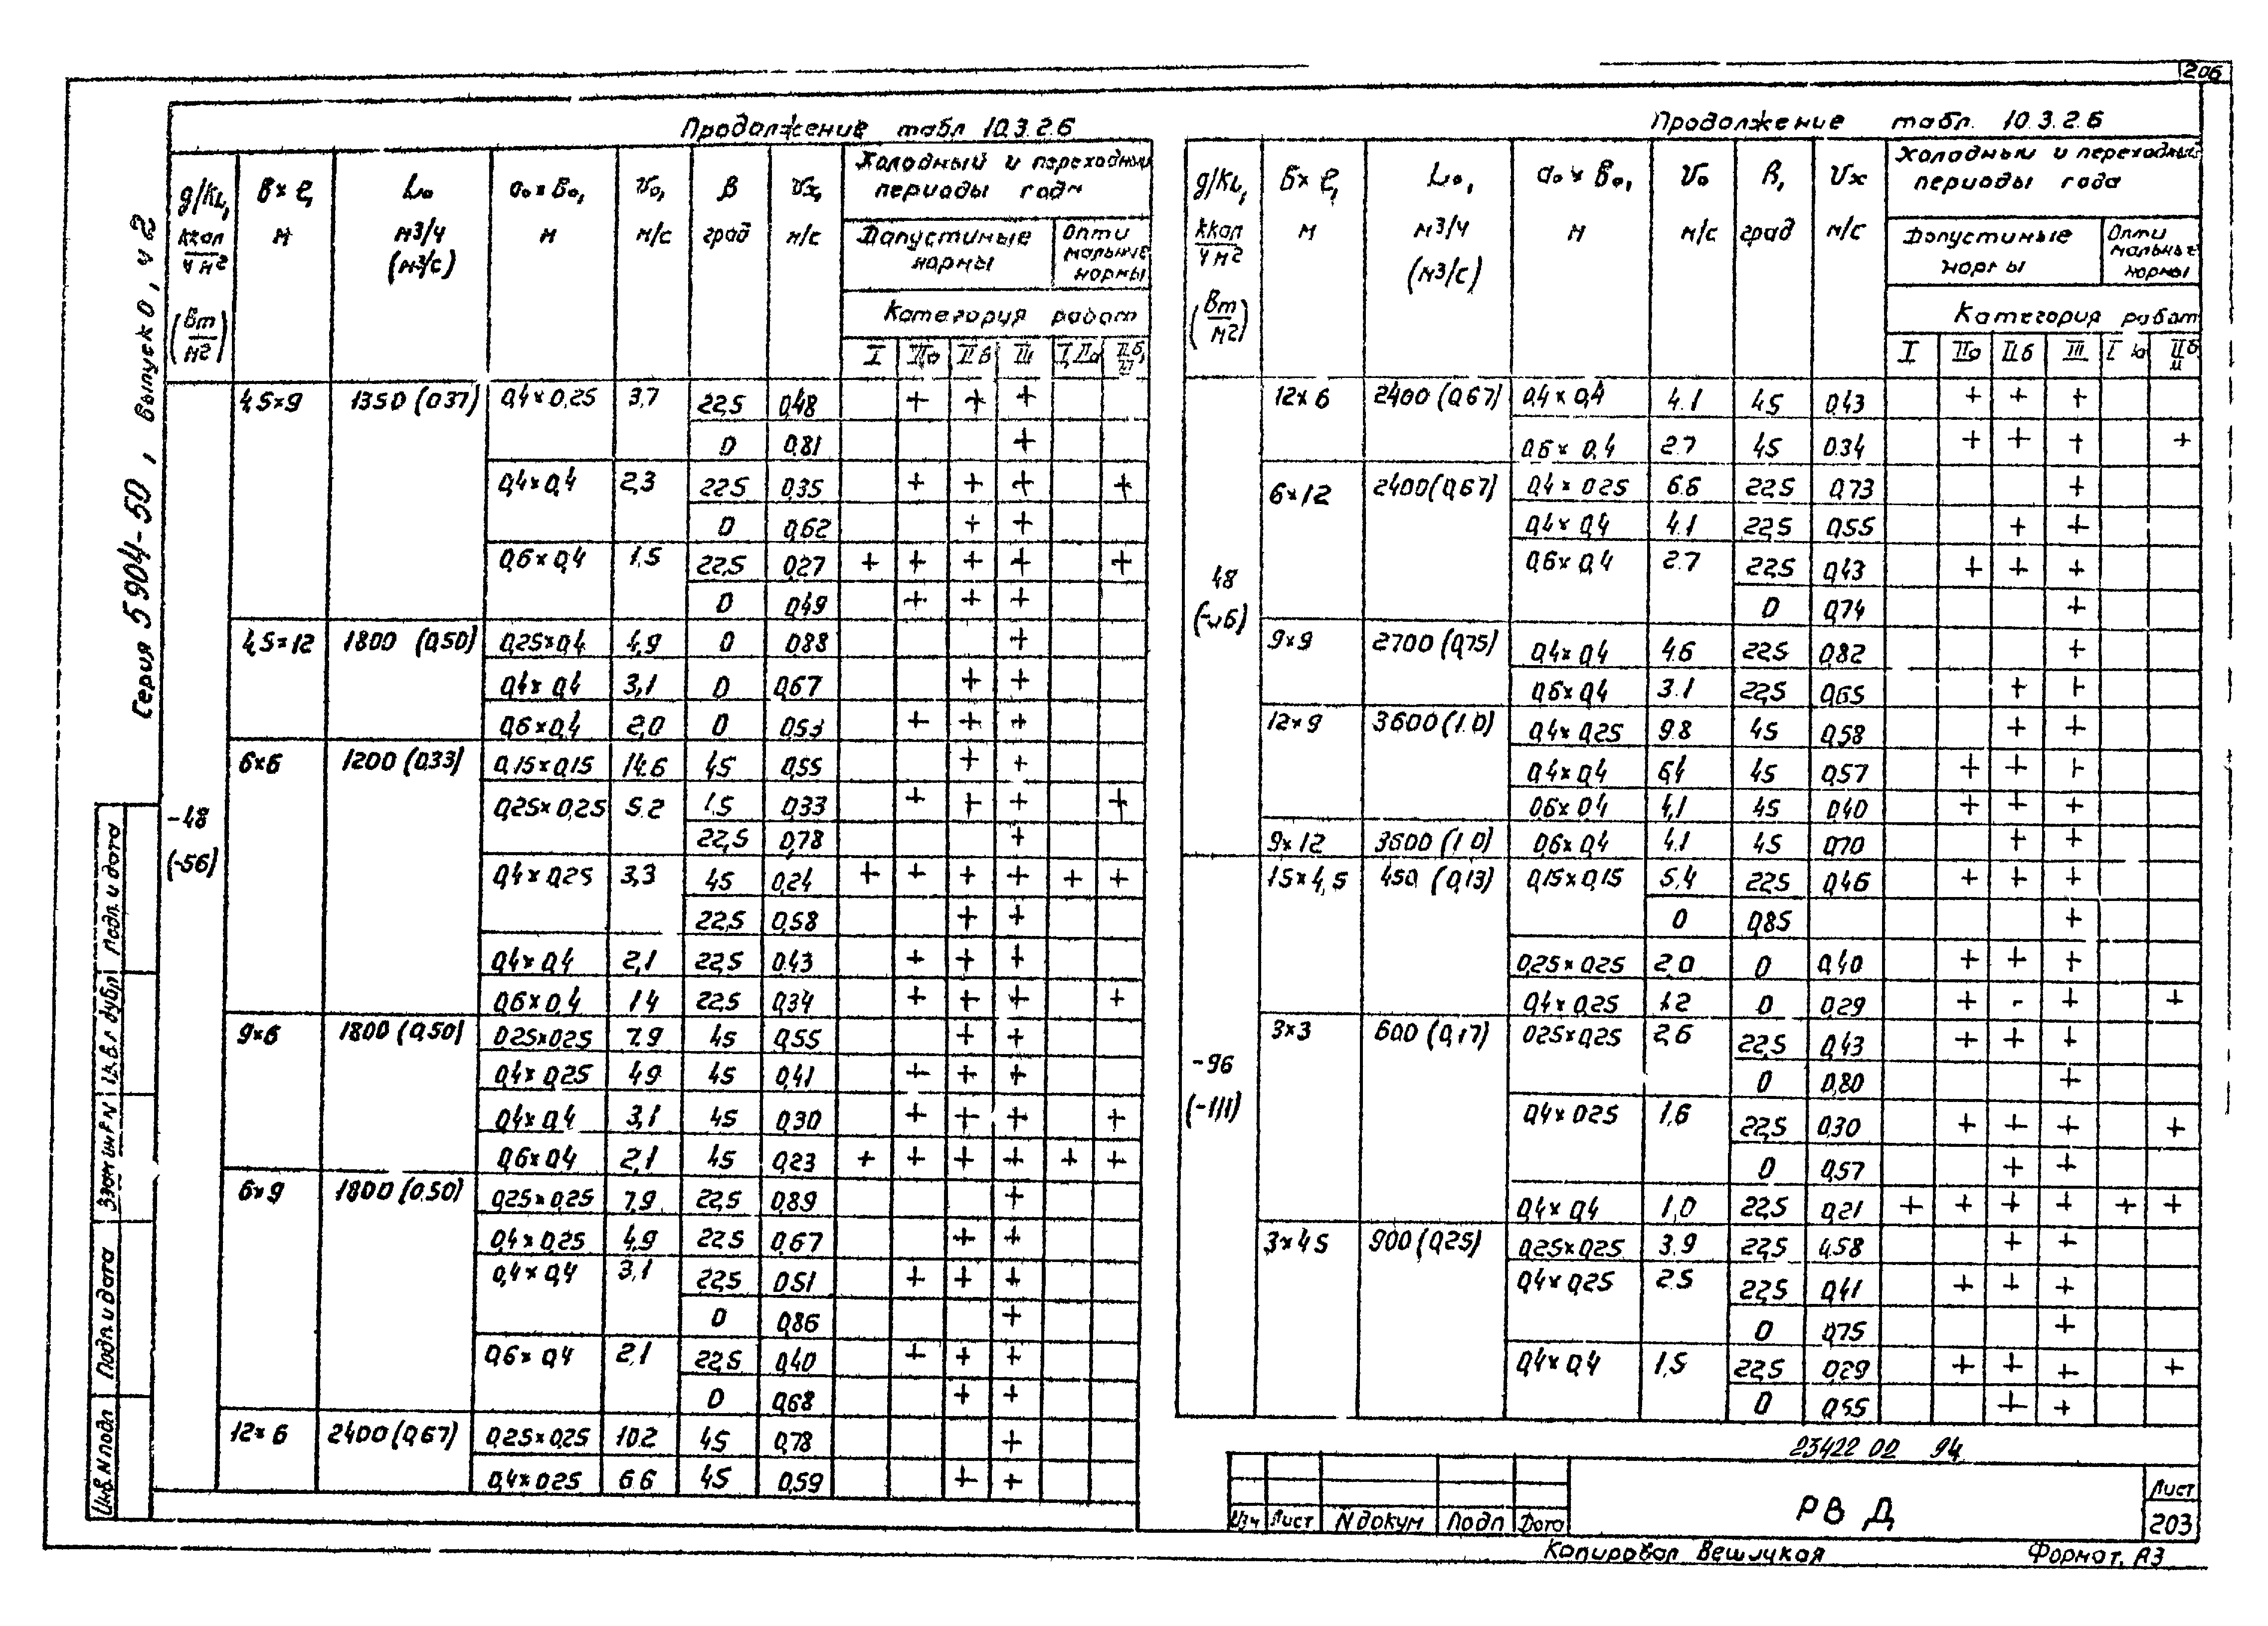 206
Серия 5904-50, выпуск 0, ч 2
Продолжение табл 10.3.2.6
g/Kц, ккал/ч м² (Вт/м²) | в × ℓ, м | L₀ м3/ч (м3/с) | а₀ × в₀, м | v₀, м/с | β град | vx, м/с | Холодный и переходный периоды года
Допустимые нормы | Опти мальные нормы
Категория работ
I | IIа | IIб | III | I, IIа | IIб,
-48 (-56)
4,5×9 | 1350 (0,37) | 0,4×0,25 | 3,7 | 22,5 | 0,48 | | + | + | + | |
0 | 0,81 | | | | + | |
0,4×0,4 | 2,3 | 22,5 | 0,35 | | + | + | + | | +
0 | 0,62 | | | + | + | |
0,6×0,4 | 1,5 | 22,5 | 0,27 | + | + | + | + | | +
0 | 0,49 | | + | + | + | |
4,5×12 | 1800 (0,50) | 0,25×0,4 | 4,9 | 0 | 0,88 | | | | + | |
0,4×0,4 | 3,1 | 0 | 0,67 | | | + | + | |
0,6×0,4 | 2,0 | 0 | 0,53 | | + | + | + | |
6×6 | 1200 (0,33) | 0,15×0,15 | 14,6 | 45 | 0,55 | | | + | + | |
0,25×0,25 | 5.2 | | 0,33 | | + | + | + | | +
22,5 | 0,78 | | | | + | |
0,4×0,25 | 3,3 | 45 | 0,24 | + | + | + | + | + | +
22,5 | 0,58 | | | + | + | |
0,4×0,4 | 2,1 | 22,5 | 0,43 | | + | + | + | |
0,6×0,4 | 1 4 | 22,5 | 0,34 | | + | + | + | | +
9×6 | 1800 (0,50) | 0,25×0,25 | 7,9 | 45 | 0,55 | | | + | + | |
0,4×0,25 | 4,9 | 45 | 0,41 | | + | + | + | |
0,4×0,4 | 3,1 | 45 | 0,30 | | + | + | + | | +
0,6×0,4 | 2,1 | 45 | 0,23 | + | + | + | + | + | +
6×9 | 1800 (0,50) | 0,25×0,25 | 7,9 | 22,5 | 0,89 | | | | + | |
0,4×0,25 | 4,9 | 22,5 | 0,67 | | | + | + | |
0,4×0,4 | 3,1 | 22,5 | 0,51 | | + | + | + | |
0 | 0,86 | | | | + | |
0,6×0,4 | 2,1 | 22,5 | 0,40 | | + | + | + | |
0 | 0,68 | | | + | + | |
12×6 | 2400 (0,67) | 0,25×0,25 | 10.2 | 45 | 0,78 | | | | + | |
0,4×0,25 | 6 6 | 45 | 0,59 | | | + | + | |
Продолжение табл. 10.3.2.6
g/Kц, ккал/ч м² (Вт/м²) | в × ℓ, м | L₀, м3/ч (м3/с) | а₀ × в₀, м | v₀ м/с | β, град | vx м/с | Холодный и переходный периоды года
Допустимые нормы | Опти мальные нормы
Категория работ
I | IIа | IIб | III | IIб и
48
12×6 | 2400 (0,67) | 0,4×0,4 | 4.1 | 45 | 0,43 | | + | + | + | |
0,6×0,4 | 2.7 | 45 | 0.34 | | + | + | + | | +
6×12 | 2400 (0,67) | 0,4×0,25 | 6.6 | 22,5 | 0,73 | | | | + | |
0,4×0,4 | 4.1 | 22,5 | 0,55 | | | + | + | |
0,6×0,4 | 2.7 | 22,5 | 0,43 | | + | + | + | |
0 | 0,74 | | | | + | |
9×9 | 2700 (0,75) | 0,4×0,4 | 4.6 | 22,5 | 0,82 | | | | + | |
0,6×0,4 | 3.1 | 22,5 | 0,65 | | | + | + | |
12×9 | 3600 (1.0) | 0,4×0,25 | 9.8 | 45 | 0,58 | | | + | + | |
0,4×0,4 | 6,4 | 45 | 0,57 | | + | + | + | |
0,6×0,4 | 4,1 | 45 | 0,40 | | + | + | + | |
9×12 | 3600 (1 0) | 0,6×0,4 | 4.1 | 45 | 0,70 | | | + | + | |
-96 (-111)
15×4,5 | 450 (0,13) | 0,15×0,15 | 5,4 | 22,5 | 0,46 | | + | + | + | |
0 | 0,85 | | | | | + | |
0,25×0,25 | 2,0 | 0 | 0,40 | | + | + | + | |
0,4×0,25 | 1.2 | 0 | 0,29 | | + | - | + | | +
3×3 | 600 (0,17) | 0,25×0,25 | 2,6 | 22,5 | 0,43 | | + | + | + | |
0 | 0,80 | | | | + | |
0,4×0,25 | 1,6 | 22,5 | 0,30 | | + | + | + | | +
0 | 0,57 | | | + | + | |
0,4×0,4 | 1,0 | 22,5 | 0,21 | + | + | + | + | + | +
3×4,5 | 900 (0,25) | 0,25×0,25 | 3.9 | 22,5 | 0,58 | | | + | + | |
0,4×0,25 | 2.5 | 22,5 | 0,41 | | + | + | + | |
0 | 0,75 | | | | + | |
0,4×0,4 | 1,5 | 22,5 | 0,29 | | + | + | + | | +
0 | 0,55 | | | + | + | |
23422 02 94
Изм Лист N докум Подп Дата
РВ Д
Лист
203
Копировал Вешлукая
Формат, А3
Инв. N подл
Подп. и дата
Взам инв N
Инв. N дубл
Подп. и дата